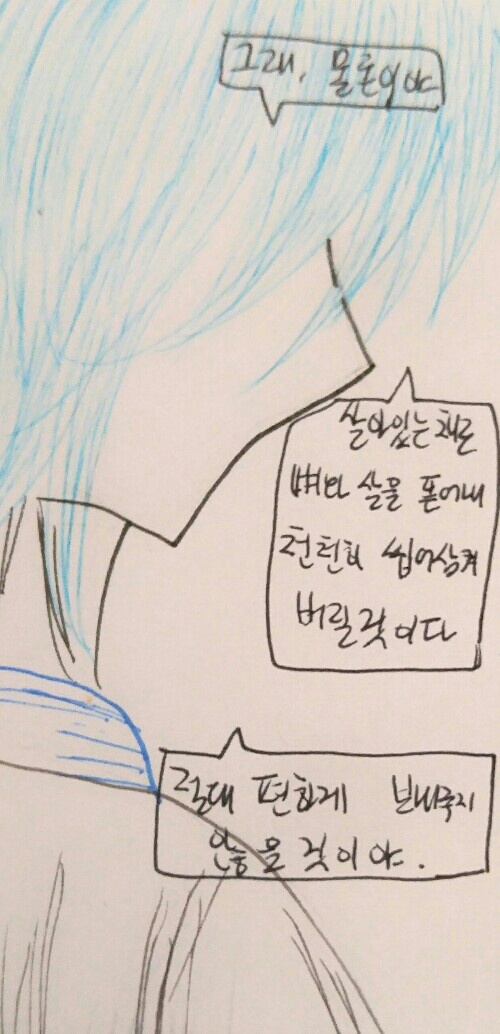 그래, 물론이야
살아있는채로
뼈와 살을 뜯어내
천천히 씹어삼켜
버릴것이다
절대 편하게 보내주지
않을 것이야.